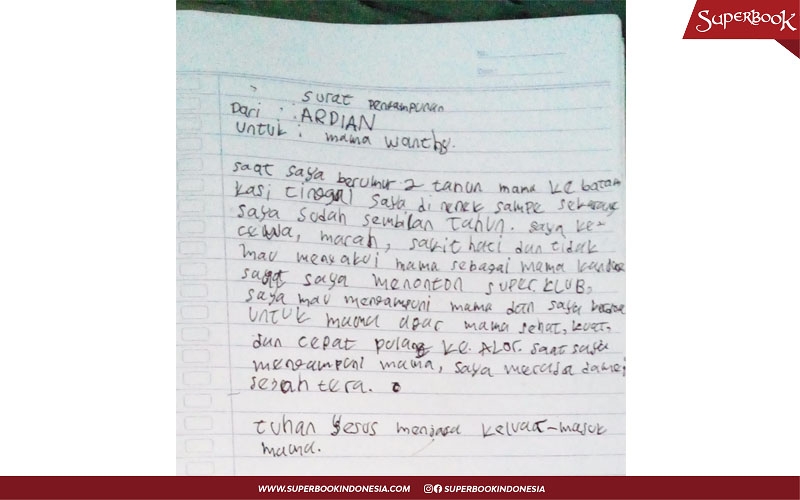 SUPERBOOK
surat pengampunan
Dari : ARDIAN
untuk : mama wanthy.
saat saya berumur 2 tahun mama ke batam
kasi tinggal saya di nenek sampe sekarang
saya sudah sembilan tahun. saya ke-
cewa, marah, sakit hati dan tidak
mau mengakui mama sebagai mama kandung
saat saya menonton SUPER KLUB,
saya mau mengampuni mama dan saya
untuk mama agar mama sehat, kuat,
dan cepat pulang ke. ALOR. saat saya
mengampuni mama, saya merasa damai
sejahtera.
tuhan Yesus menjaga keluar-masuk
mama.
WWW.SUPERBOOKINDONESIA.COM SUPERBOOKINDONESIA